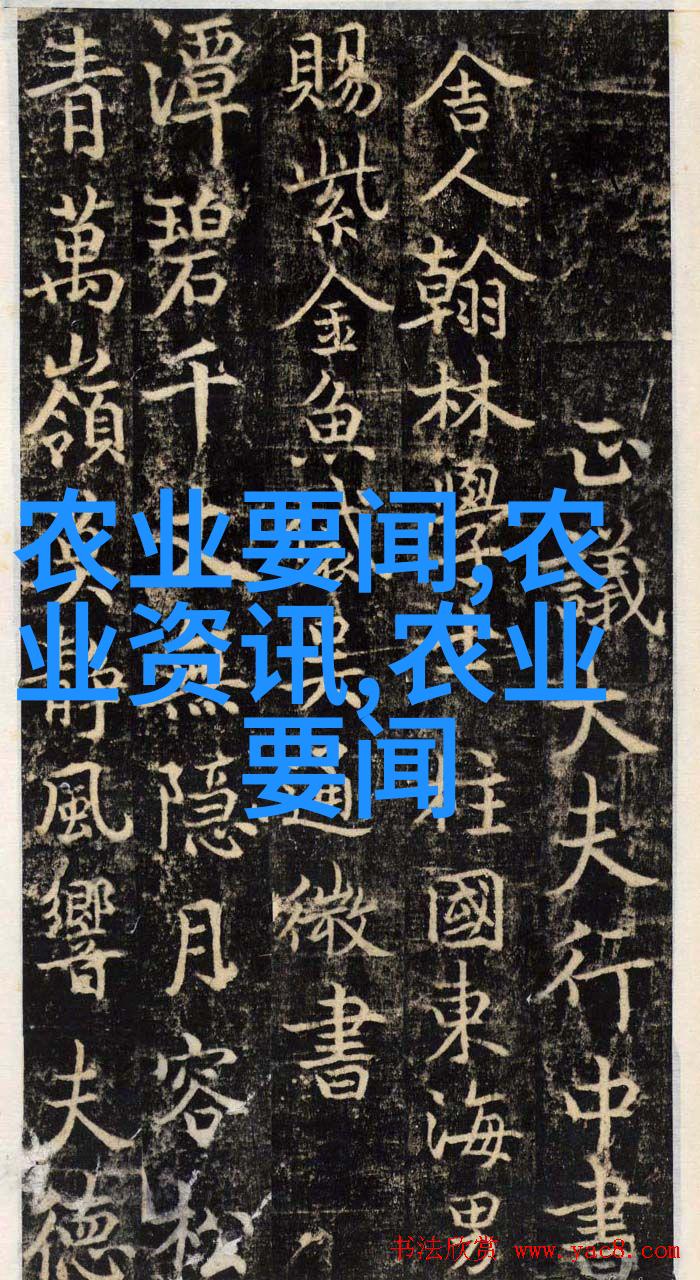 正議大夫行中書
舍人翰林學士柱國東海男
賜紫金魚袋吳通微書
潭碧千丈無隱月容松
青萬嶺莫靜風響夫德
农业要闻,农
业资讯,农业
要闻
书法欣赏 www.yac8.com